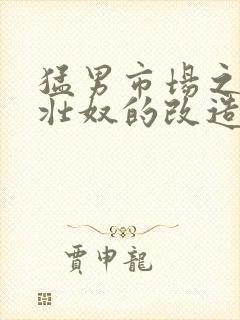 猛男市場之
壯奴的改造
賈申龍